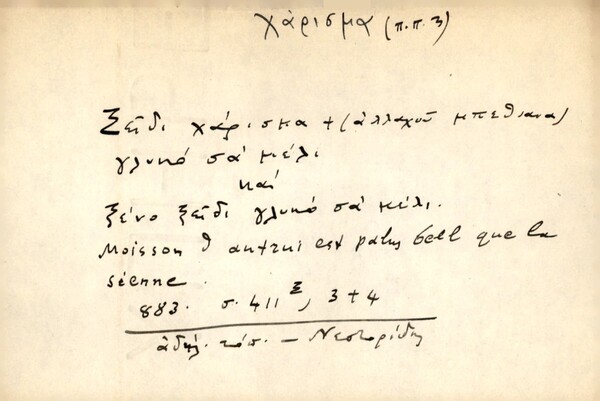 χάρισμα (π.π. 3)
Ξεῖδι χάρισμα + (ἀλλαχοῦ μπεθιανα)
γλυκό σά μέλι
καί
ξένο ξεῖδι γλυκό σά μέλι.
Moisson d'autrui est palus bell que la
sienne.
883. σ. 411 Ξ, 3+4
ἀδήλ. τόπ. — Νεστορίδης